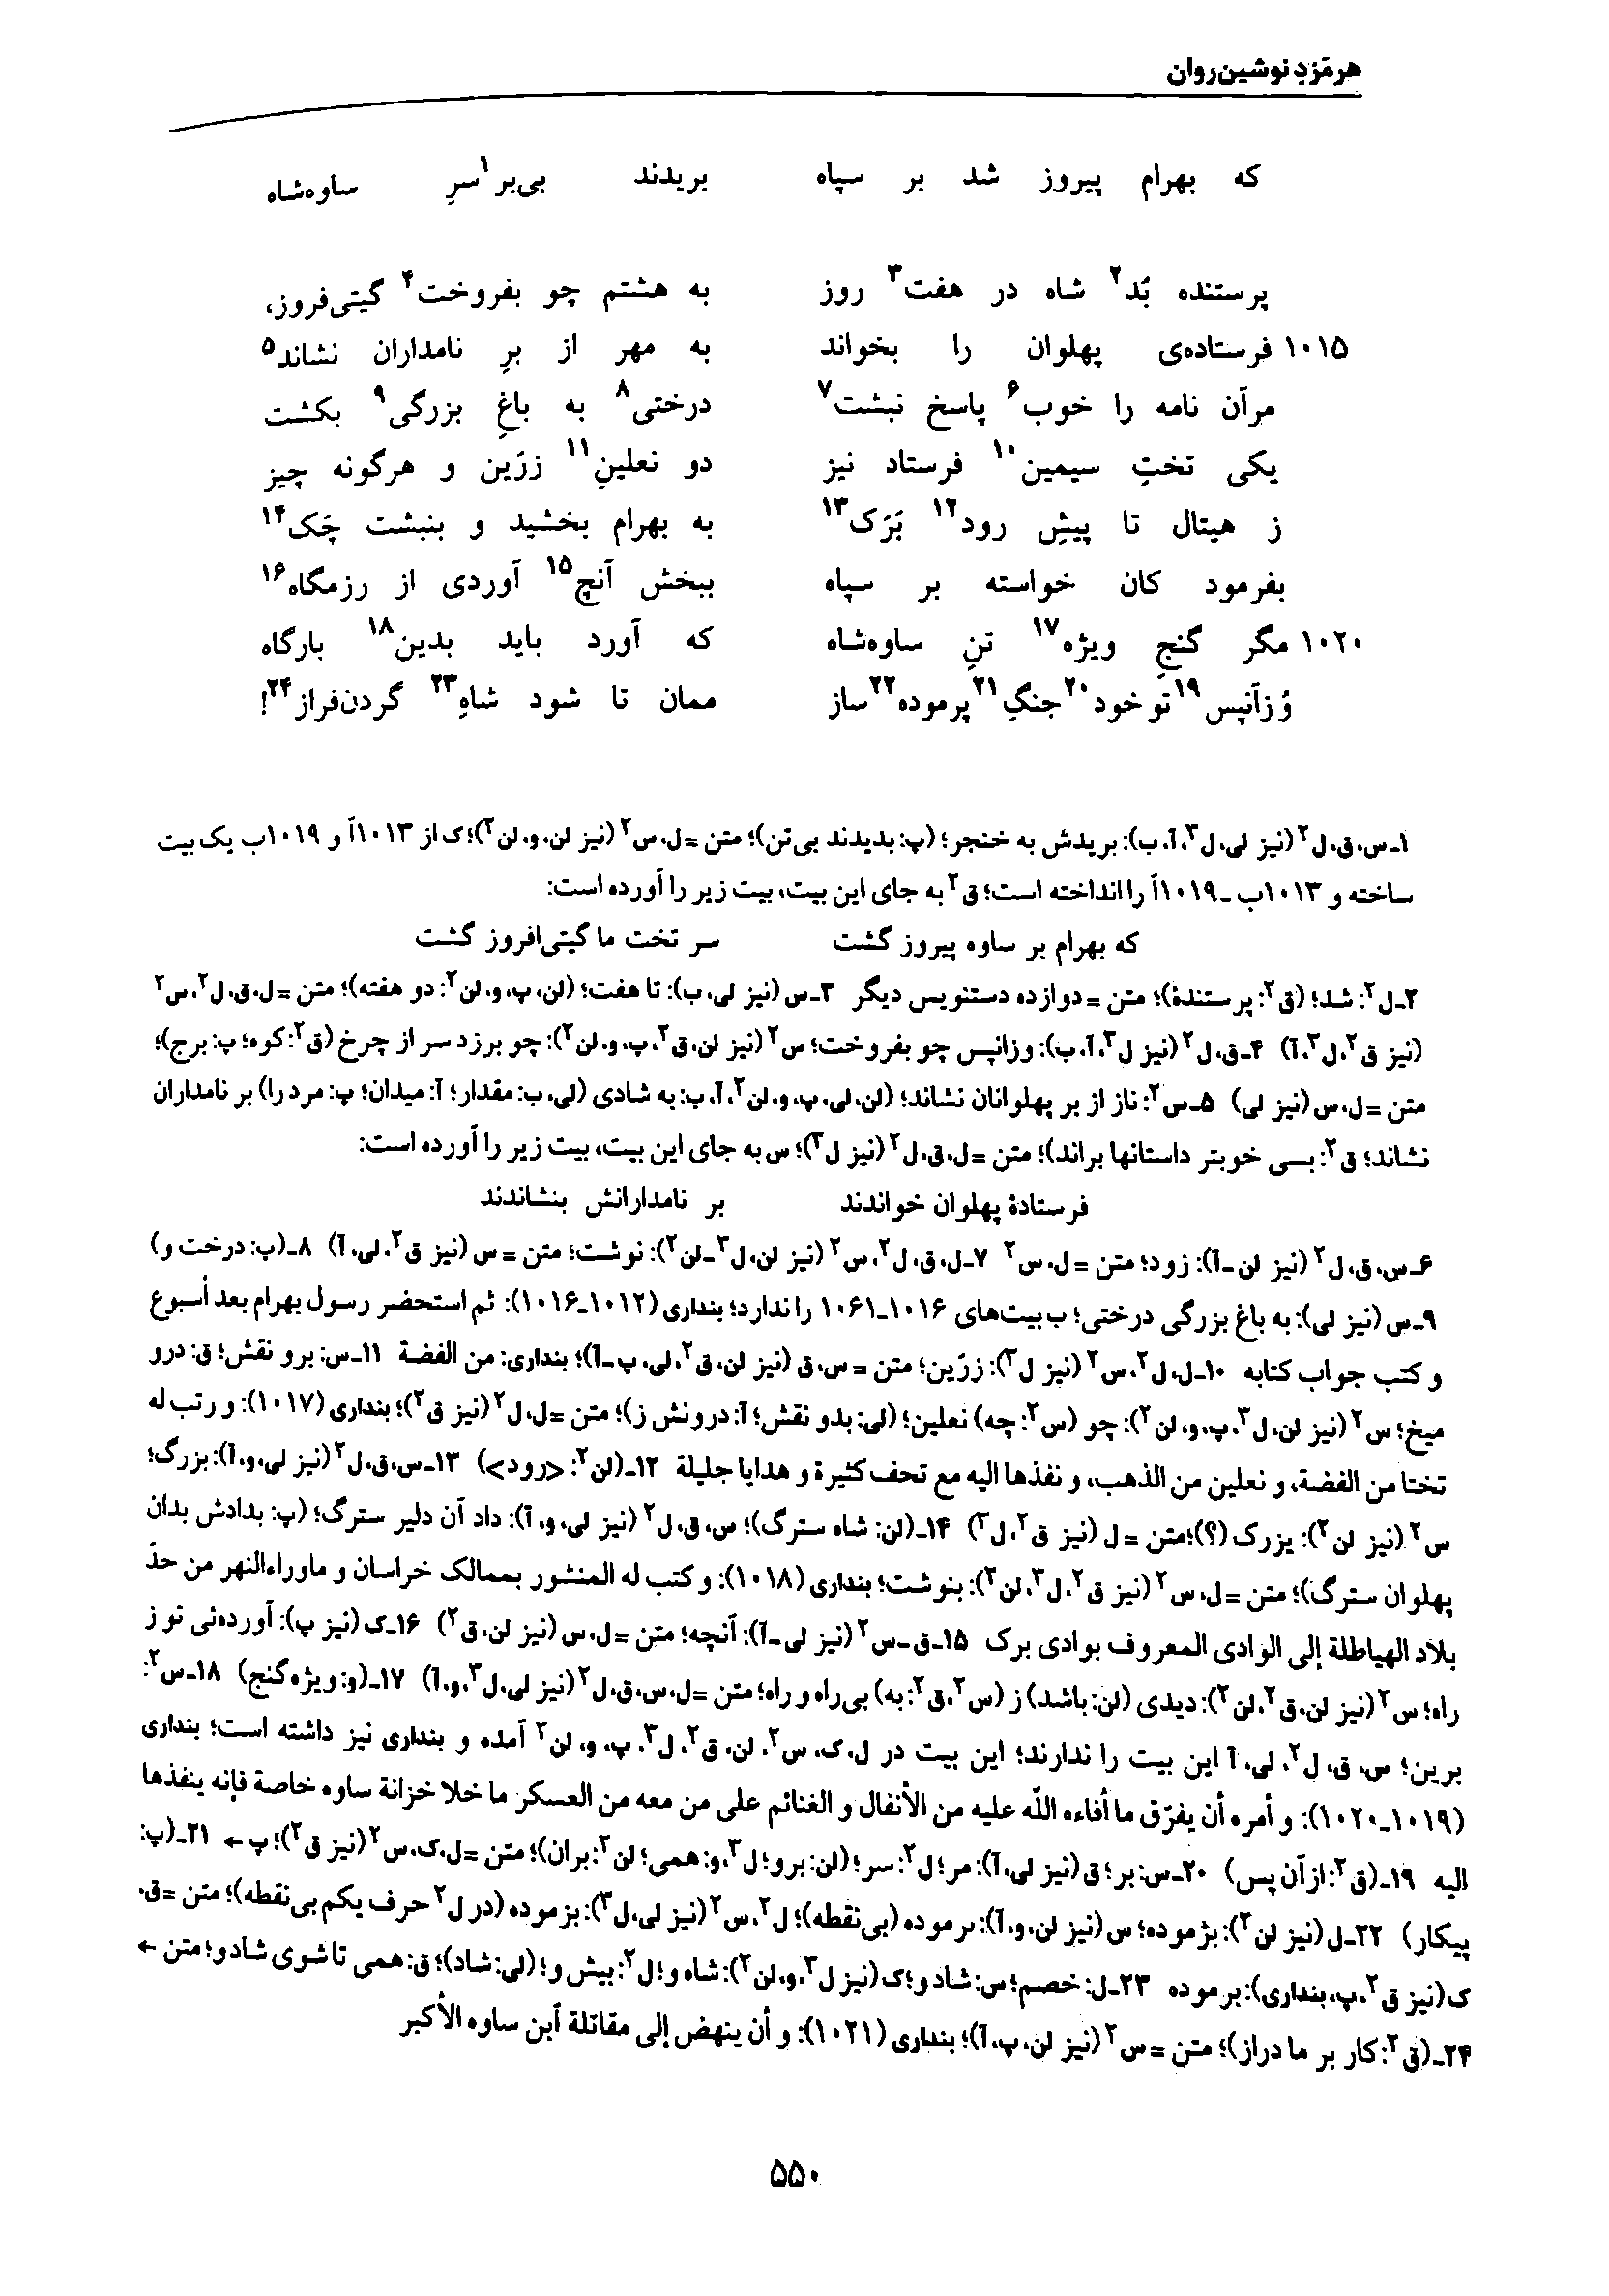 هرمَزدِ نوشین‌روان
که بهرام پیروز شد بر سپاه بریدند بی‌بر¹ سرِ ساوه‌شاه
پرستنده بُد² شاه در هفت³ روز به هشتم چو بفروخت⁴ گیتی‌فروز،
۱۰۱۵ فرستاده‌ی پهلوان را بخواند به مهر از برِ نامداران نشاند⁵
مرآن نامه را خوب⁶ پاسخ نبشت⁷ درختی⁸ به باغِ بزرگی⁹ بکشت
یکی تختِ سیمین¹⁰ فرستاد نیز دو نعلینِ¹¹ زرّین و هرگونه چیز
ز هیتال تا پیشِ رود¹² بَرَک¹³ به بهرام بخشید و بنبشت چَک¹⁴
بفرمود کان خواسته بر سپاه ببخش آنچ¹⁵ آوردی از رزمگاه¹⁶
۱۰۲۰ مگر گنجِ ویژه¹⁷ تنِ ساوه‌شاه که آورد باید بدین¹⁸ بارگاه
وُ زآنپس¹⁹ تو خود²⁰ جنگِ²¹ پرموده²² ساز ممان تا شود شاهِ²³ گردن‌فراز²⁴!
۱ـ س، ق، ل² (نیز لی، ل³، آ، ب): بریدش به خنجر؛ (پ: بدیدند بی‌تن)؛ متن = ل، س² (نیز لن، و، لن²)؛ ک از ۱۰۱۳آ و ۱۰۱۹ب یک بیت
ساخته و ۱۰۱۳ب ـ ۱۰۱۹آ را انداخته است؛ ق² به جای این بیت، بیت زیر را آورده است:
که بهرام بر ساوه پیروز گشت سر تخت ما گیتی‌افروز گشت
۲ـ ل²: شد؛ (ق²: پرستندهٔ)؛ متن = دوازده دستنویس دیگر ۳ـ س (نیز لی، ب): تا هفت؛ (لن، پ، و، لن²: دو هفته)؛ متن = ل، ق، ل²، س²
(نیز ق²، ل³، آ) ۴ـ ق، ل² (نیز ل³، آ، ب): وزانپس چو بفروخت؛ س² (نیز لن، ق²، پ، و، لن²): چو برزد سر از چرخ (ق²: کوه؛ پ: برج)؛
متن = ل، س (نیز لی) ۵ـ س²: ناز از بر پهلوانان نشاند؛ (لن، لی، پ، و، لن²، آ، ب: به شادی (لی، ب: مقدار؛ آ: میدان؛ پ: مرد را) بر نامداران
نشاند؛ ق²: بسی خوبتر داستانها براند)؛ متن = ل، ق، ل² (نیز ل³)؛ س به جای این بیت، بیت زیر را آورده است:
فرستادهٔ پهلوان خواندند بر نامدارانش بنشاندند
۶ـ س، ق، ل² (نیز لن ـ آ): زود؛ متن = ل، س² ۷ـ ل، ق، ل²، س² (نیز لن، ل³ ـ لن²): نوشت؛ متن = س (نیز ق²، لی، آ) ۸ـ (پ: درخت و)
۹ـ س (نیز لی): به باغ بزرگی درختی؛ ب بیت‌های ۱۰۱۶ـ۱۰۶۱ را ندارد؛ بنداری (۱۰۱۲ـ۱۰۱۶): ثم استحضر رسول بهرام بعد أسبوع
و کتب جواب کتابه ۱۰ـ ل، ل²، س² (نیز ل³): زرّین؛ متن = س، ق (نیز لن، ق²، لی، پ ـ آ)؛ بنداری: من الفضة ۱۱ـ س: برو نقش؛ ق: درو
میخ؛ س² (نیز لن، ل³، پ، و، لن²): چو (س²: چه) نعلین؛ (لی: بدو نقش؛ آ: درونش ز)؛ متن = ل، ل² (نیز ق²)؛ بنداری (۱۰۱۷): و رتب له
تختا من الفضة، و نعلین من الذهب، و نفذها الیه مع تحف کثیرة و هدایا جلیلة ۱۲ـ (لن²: <رود>) ۱۳ـ س، ق، ل² (نیز لی، و، آ): بزرگ؛
س² (نیز لن²): یزرک (؟)؛ متن = ل (نیز ق²، ل³) ۱۴ـ (لن: شاه سترگ)؛ س، ق، ل² (نیز لی، و، آ): داد آن دلیر سترگ؛ (پ: بدادش بدان
پهلوان سترگ)؛ متن = ل، س² (نیز ق²، ل³، لن²): بنوشت؛ بنداری (۱۰۱۸): و کتب له المنشور بممالک خراسان و ماوراءالنهر من حدّ
بلاد الهیاطلة إلی الوادی المعروف بوادی برک ۱۵ـ ق ـ س² (نیز لی ـ آ): آنچه؛ متن = ل، س (نیز لن، ق²) ۱۶ـ ک (نیز پ): آورده‌ئی تو ز
راه؛ س² (نیز لن، ق²، لن²): دیدی (لن: باشد) ز (س²، ق²: به) بی‌راه و راه؛ متن = ل، س، ق، ل² (نیز لی، ل³، و، آ) ۱۷ـ (و: ویژه گنج) ۱۸ـ س²:
برین؛ س، ق، ل²، لی، آ این بیت را ندارند؛ این بیت در ل، ک، س²، لن، ق²، ل³، پ، و، لن² آمده و بنداری نیز داشته است؛ بنداری
(۱۰۱۹ـ۱۰۲۰): و أمره أن یفرّق ما أفاءه اللّه علیه من الأنفال و الغنائم علی من معه من العسکر ما خلا خزانة ساوه خاصة فإنه ینفذها
الیه ۱۹ـ (ق²: از آن پس) ۲۰ـ س: بر؛ ق (نیز لی، آ): مر؛ ل²: سر؛ (لن: برو؛ ل³، و: همی؛ لن²: بران)؛ متن = ل، ک، س² (نیز ق²)؛ پ ← ۲۱ـ (پ:
پیکار) ۲۲ـ ل (نیز لن²): بژموده؛ س (نیز لن، و، آ): ٮرموده (بی‌نقطه)؛ ل²، س² (نیز لی، ل³): بزموده (در ل² حرف یکم بی‌نقطه)؛ متن = ق،
ک (نیز ق²، پ، بنداری): برموده ۲۳ـ ل: خصم؛ س: شاد و؛ ک (نیز ل³، و، لن²): شاه و؛ ل²: بیش و؛ (لی: شاد)؛ ق: همی تا شوی شاد و؛ متن ←
۲۴ـ (ق²: کار بر ما دراز)؛ متن = س² (نیز لن، پ، آ)؛ بنداری (۱۰۲۱): و أن ینهض إلی مقاتلة أبن ساوه الأکبر
۵۵۰